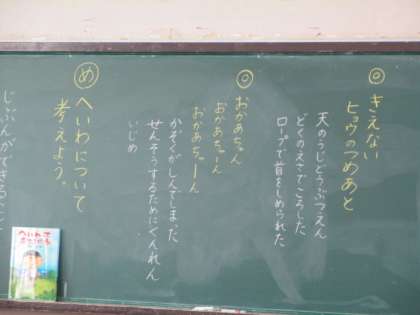 ◎きえない
ヒョウのつめあと
天のうじどうぶつえん
どくのえさでころした
ロープで首をしめられた
◎
おかあちゃん
おかあちゃーん
おかあちゃーーん
かぞくがしんでしまった
せんそうするためにくんれん
いじめ
めへいわについて
考えよう。
じぶんができること
へいわって